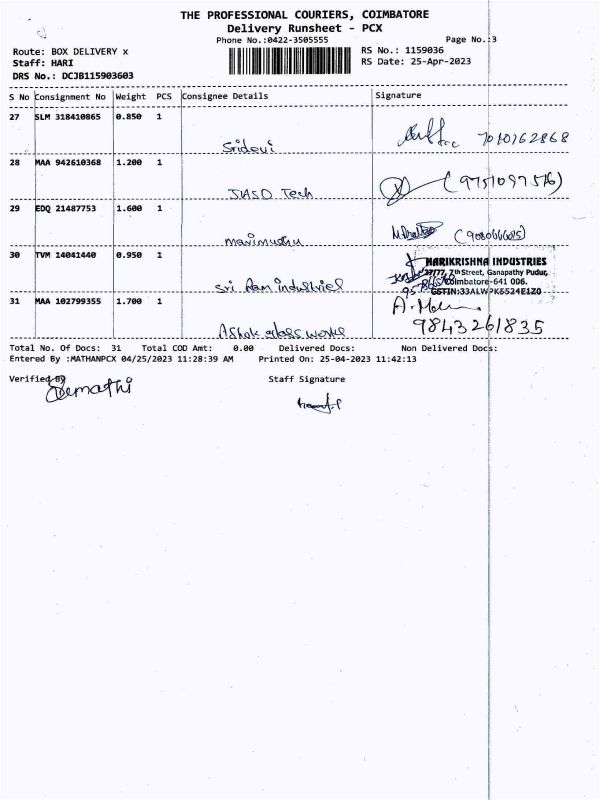 THE PROFESSIONAL COURIERS, COIMBATORE
Delivery Runsheet - PCX
Phone No.:0422-3505555 Page No.:3
Route: BOX DELIVERY x RS No.: 1159036
Staff: HARI RS Date: 25-Apr-2023
DRS No.: DCJB115903603
S No Consignment No Weight PCS Consignee Details Signature
27 SLM 318410865 0.850 1
Sridevi 7010762868
28 MAA 942610368 1.200 1
JIASO Tech (9751097576)
29 EDQ 21487753 1.600 1
marimuthu
30 TVM 14041440 0.950 1 HARIKRISHNA INDUSTRIES
7th Street, Ganapathy Pudur,
Coimbatore-641 006.
Sri Ram industriel
31 MAA 102799355 1.700 1
9843261835
Ashok glass works
Total No. Of Docs: 31 Total COD Amt: 0.00 Delivered Docs: Non Delivered Docs:
Entered By :MATHANPCX 04/25/2023 11:28:39 AM Printed On: 25-04-2023 11:42:13
Verified By Staff Signature